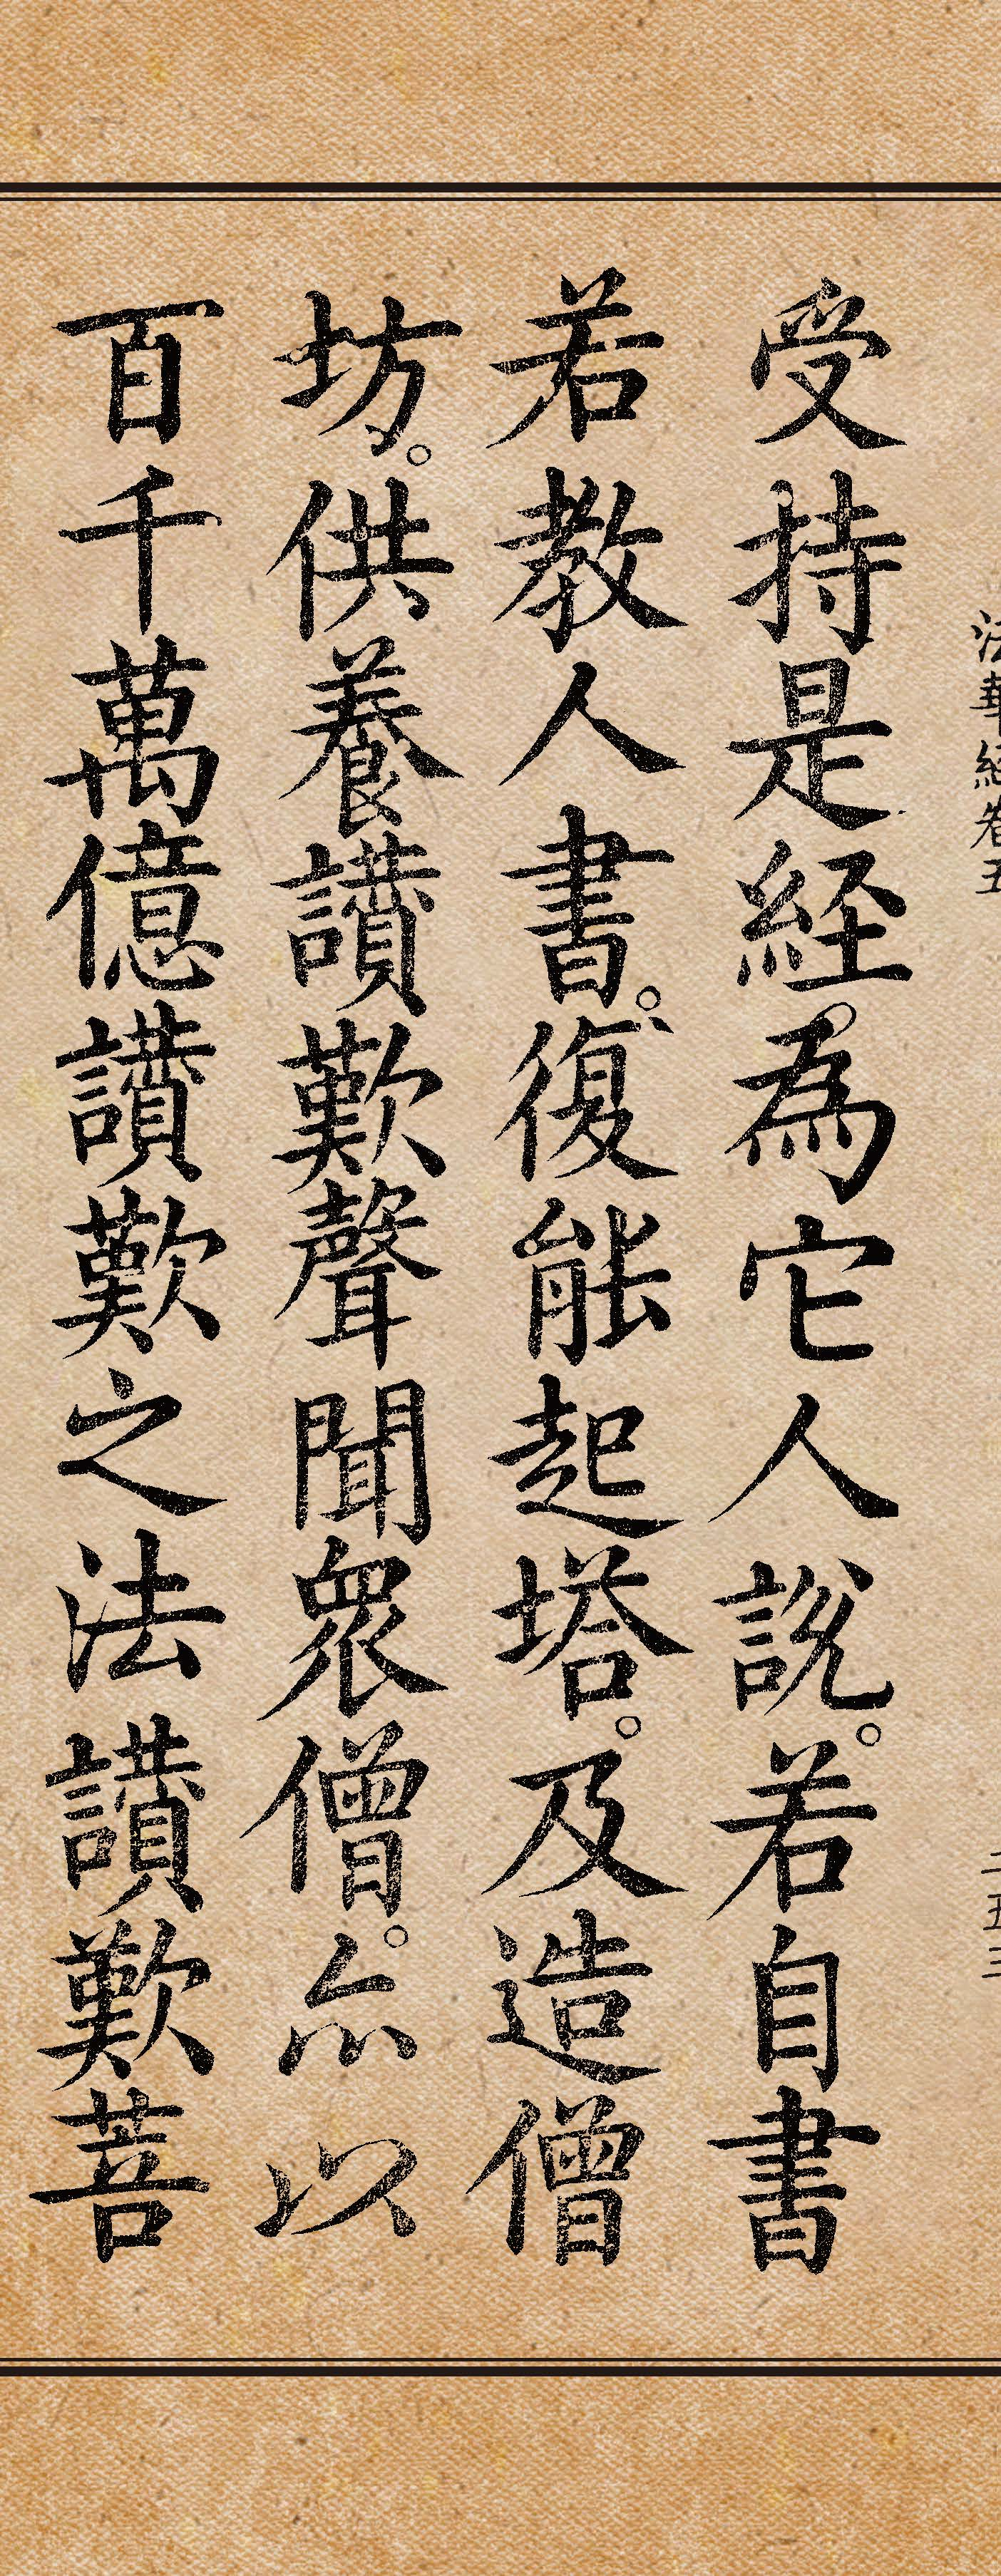 法華經卷五
二五三
受持是経。為它人説。若自書
若教人書。復能起塔。及造僧
坊。供養讃歎聲聞衆僧。亦以
百千萬億讃歎之法讃歎菩